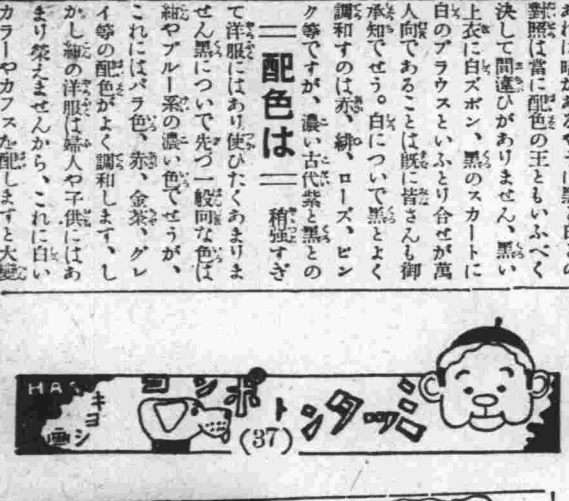 對照は當に配色の王ともいふべく
決して間違ひがありません、黒い
上衣に白ズボン、黒のスカートに
白のブラウスといふとり合せが萬
人向であることは既に皆さんも御
承知でせう。白について黒とよく
調和すのは赤、緋、ローズ、ピン
ク等ですが、濃い古代紫と黒との
配色は
稍強すぎ
て洋服にはあり使ひたくあまりま
せん黒について先づ一般向な色は
紺やブルー系の濃い色でせうが、
これにはバラ色、赤、金茶、グレ
イ等の配色がよく調和します、し
かし紺の洋服は婦人や子供にはあ
まり榮えませんから、これに白い
カラーやカフスを配しますと大變
ミッタントポンコ
(37)
HAS
キヨシ画